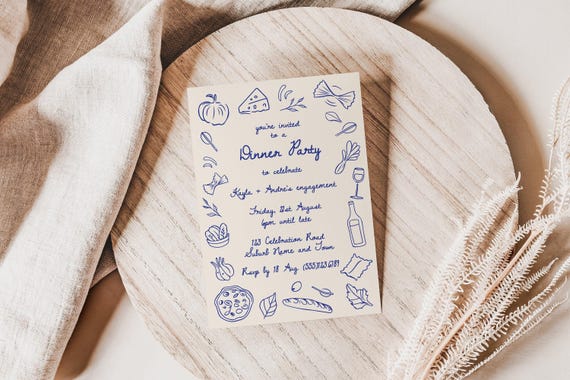 you're invited
to a
Dinner Party
to celebrate
Kayla + Andre's engagement
Friday, 21st August
6pm until late
123 Celebration Road
Suburb Name and Town
Rsvp by 18 Aug (555)123.6789